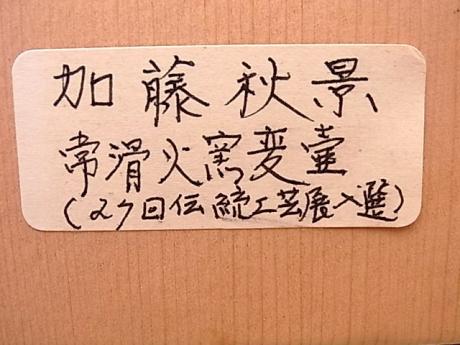 加藤秋景
常滑火窯変壷
(27回伝統工芸展入選)